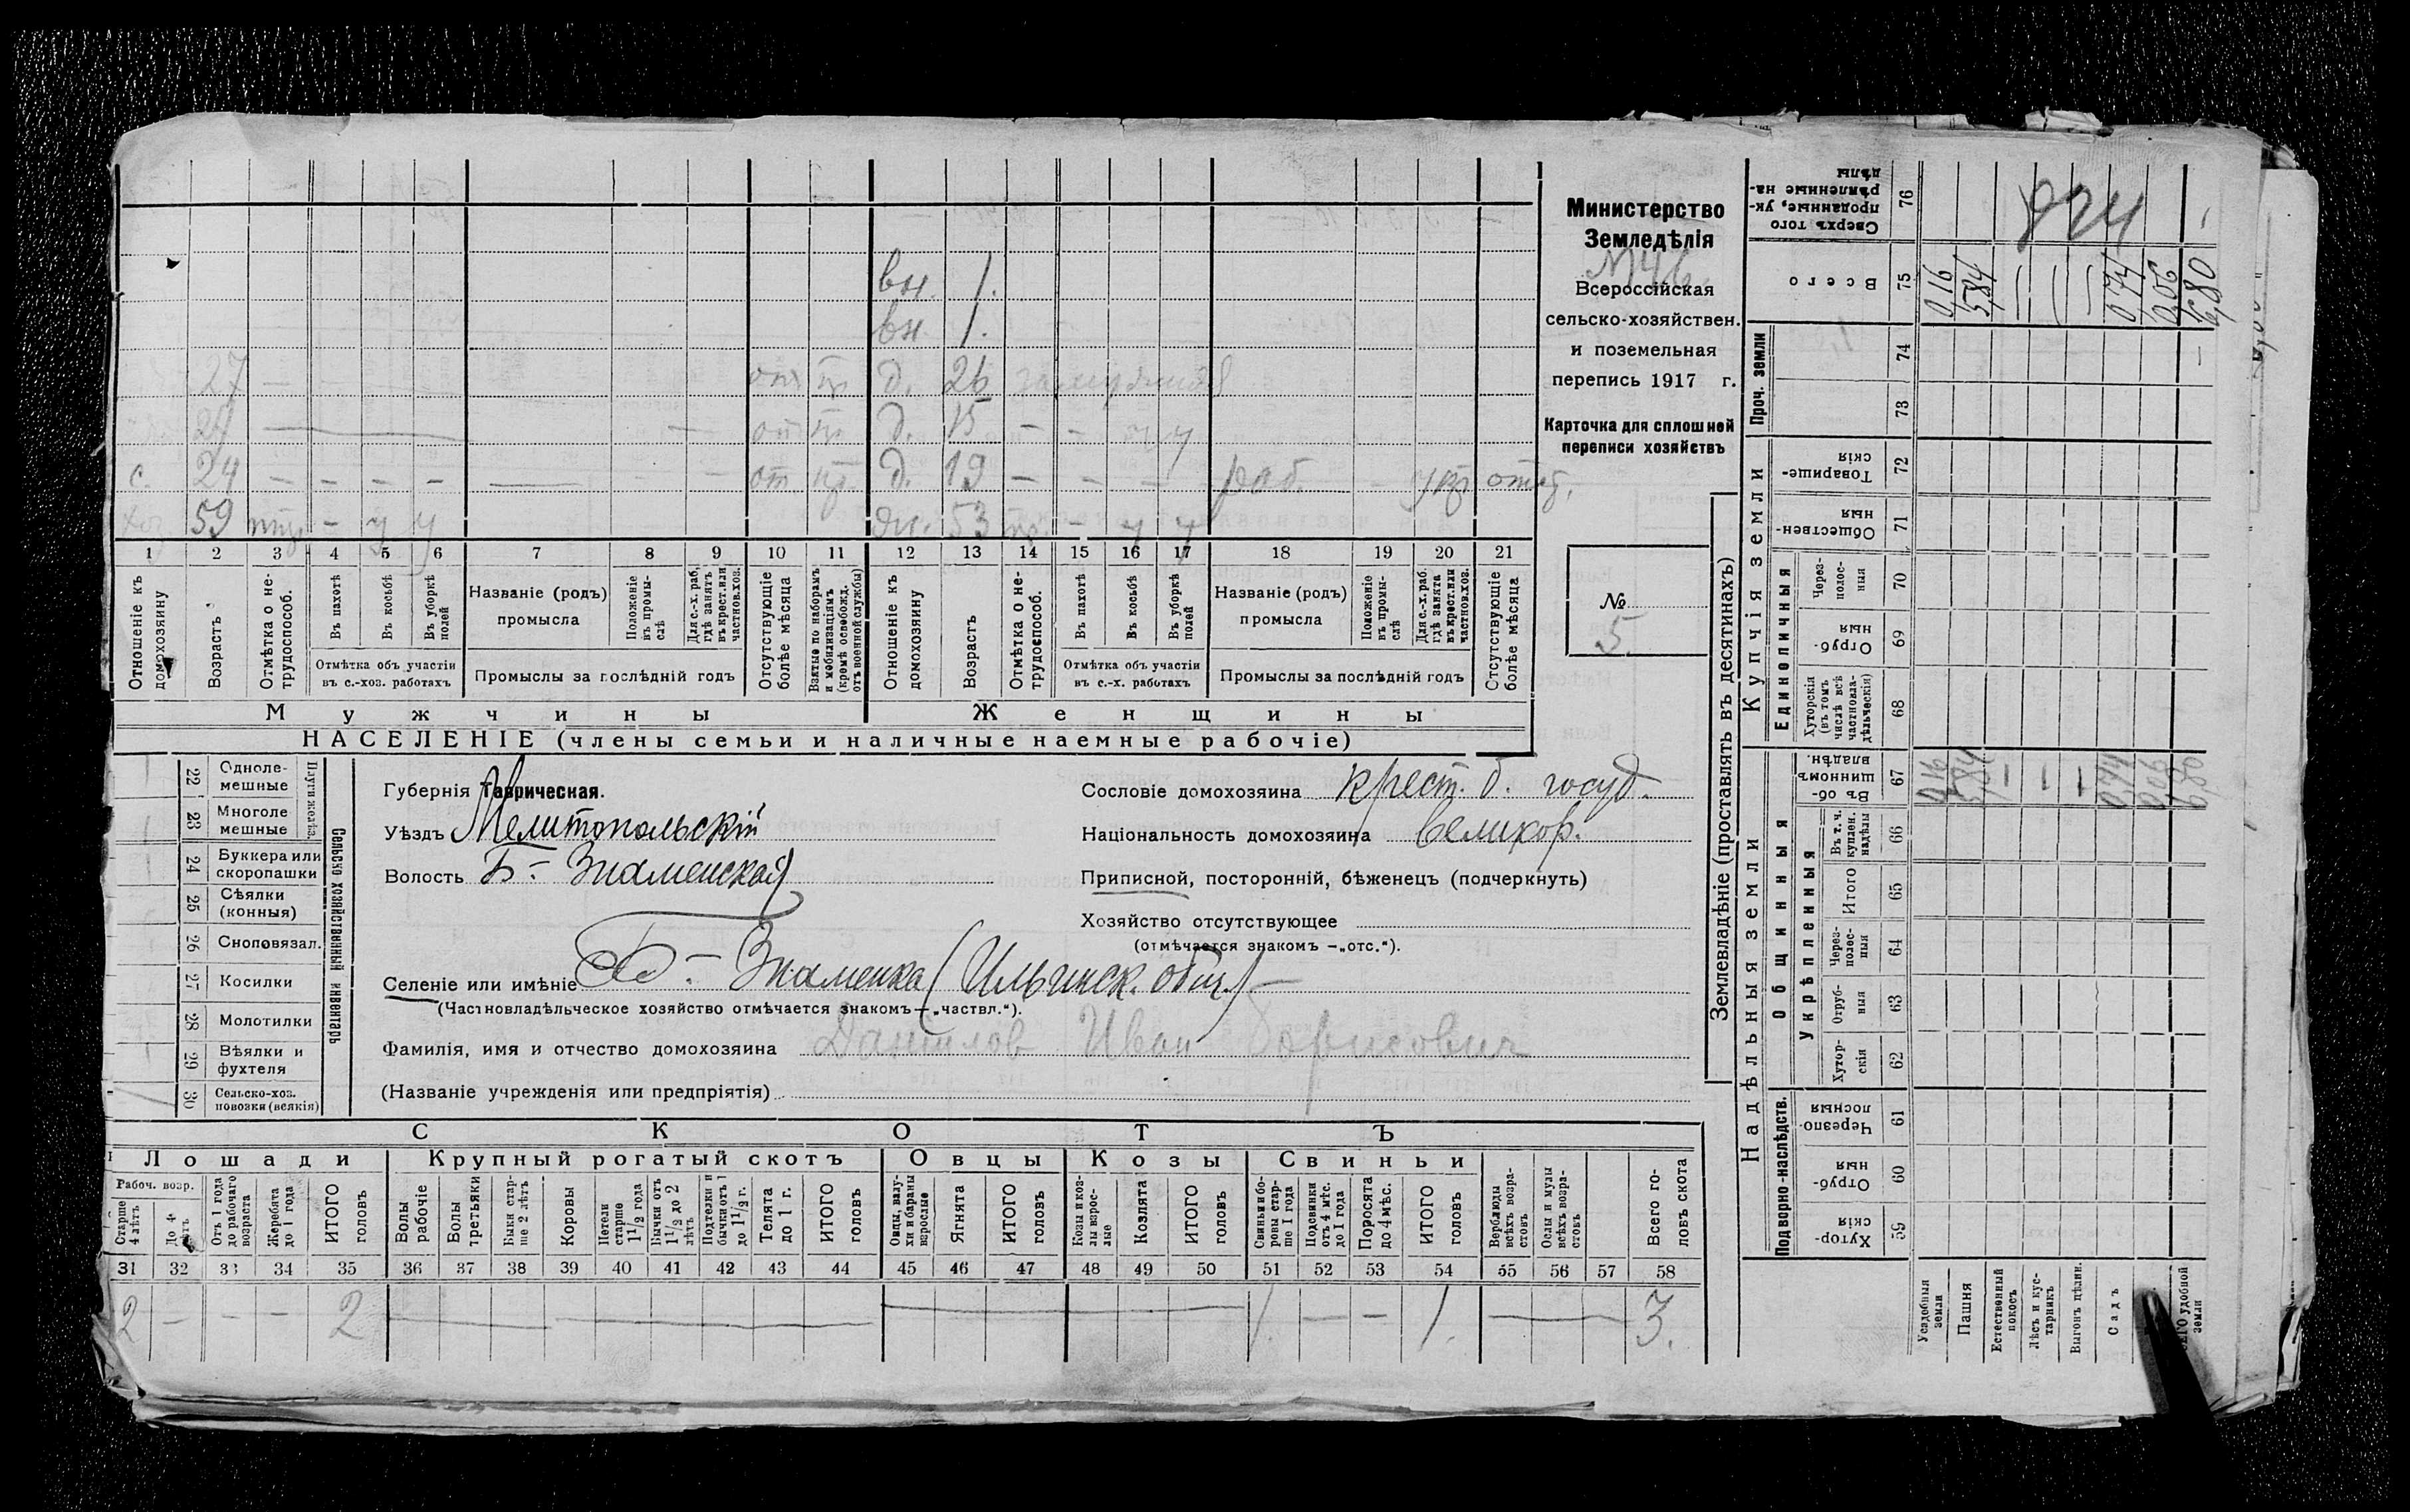 вн. 1.
вн. 1.
27 — от пр д. 26 замужняя
24 — — от пр. д. 15 — — у у
с. 24 — — — — — — — от пр. д. 19 — — — раб. — отсу.
хоз 59 — у у жи. 53 — у у
1 2 3 4 5 6 7 8 9 10 11 12 13 14 15 16 17 18 19 20 21
Отношеніе къ домохозяину
Возрастъ
Отмѣтка о нетрудоспособ.
Въ пахотѣ
Въ косьбѣ
Въ уборкѣ полей
Отмѣтка объ участіи въ с.-хоз. работахъ
Названіе (родъ) промысла
Положеніе въ промыслѣ
Для с.-х. раб, гдѣ занятъ въ крест. или частнов. хоз.
Промыслы за послѣдній годъ
Отсутствующіе болѣе мѣсяца
Взятые по наборамъ и мобилизаціямъ (кромѣ освобожд. отъ военной службы)
Отношеніе къ домохозяину
Возрастъ
Отмѣтка о нетрудоспособ.
Въ пахотѣ
Въ косьбѣ
Въ уборкѣ полей
Отмѣтка объ участіи въ с.-х. работахъ
Названіе (родъ) промысла
Положеніе въ промыслѣ
Для с.-х. раб. гдѣ занята въ крест. или частнов. хоз.
Промыслы за послѣдній годъ
Отсутствующіе болѣе мѣсяца
Мужчины
Женщины
НАСЕЛЕНІЕ (члены семьи и наличные наемные рабочіе)
Министерство
Земледѣлія
№ 46
Всероссійская
сельско-хозяйствен.
и поземельная
перепись 1917 г.
Карточка для сплошной
переписи хозяйствъ
№
5.
22 Однолемешные
23 Многолемешные
Плуги желѣз.
24 Буккера или скоропашки
25 Сѣялки (конныя)
26 Сноповязал.
27 Косилки
28 Молотилки
29 Вѣялки и фухтеля
30 Сельско-хоз. повозки (всякія)
Сельско хозяйственный инвентарь
Губернія Таврическая.
Уѣздъ Мелитопольскій
Волость Б.- Знаменская
Селеніе или имѣніе Б.- Знаменка (Ильинск. общ.) —
(Частновладѣльческое хозяйство отмѣчается знакомъ — „частвл.“).
Фамилія, имя и отчество домохозяина Данилов Иван Борисович
(Названіе учрежденія или предпріятія)
Сословіе домохозяина крест. б. госуд.
Національность домохозяина великор.
Приписной, посторонній, бѣженецъ (подчеркнуть)
Хозяйство отсутствующее
(отмѣчается знакомъ — „отс.“).
СКОТЪ
Лошади
Крупный рогатый скотъ
Овцы
Козы
Свиньи
Рабоч. возр.
Старше 4 лѣтъ
До 4 лѣтъ
Отъ 1 года до рабочаго возраста
Жеребята до 1 года
ИТОГО головъ
Волы рабочіе
Волы третьяки
Быки старше 2 лѣтъ
Коровы
Нетели старше 1 1/2 года
Бычки отъ 1 1/2 до 2 лѣтъ
Подтелки и бычки отъ 1 до 1 1/2 г.
Телята до 1 г.
ИТОГО головъ
Овцы, валухи и бараны взрослые
Ягнята
ИТОГО головъ
Козы и козлы взрослые
Козлята
ИТОГО головъ
Свиньи и боровы старше 1 года
Подсвинки отъ 4 мѣс. до 1 года
Поросята до 4 мѣс.
ИТОГО головъ
Верблюды всѣхъ возрастовъ
Ослы и мулы всѣхъ возрастовъ
Всего головъ скота
31 32 33 34 35 36 37 38 39 40 41 42 43 44 45 46 47 48 49 50 51 52 53 54 55 56 57 58
2 — — — 2 — — — 1. — — 1. — 3.
Землевладѣніе (проставлять въ десятинахъ)
Надѣльныя земли
Купчія земли
Проч. земли
Подворно-наслѣдств.
Общинныя
Укрѣпленныя
Единоличныя
Сверхъ того проданные, укрѣпленные надѣлы 76
Всего 75
74
73
Товарищескія 72
Общественныя 71
Черезполосныя 70
Отрубныя 69
Хуторскія (въ томъ числѣ всѣ частновладѣльческія) 68
Въ общинномъ владѣн. 67
Въ т. ч. куплен. надѣлы 66
Итого 65
Черезполосныя 64
Отрубныя 63
Хуторскія 62
Черезполосныя 61
Отрубныя 60
Хуторскія 59
924
0,16 5,84 — — — 0,74 0,06 6,80
0,16 5,84 — — — 0,74 0,06 6,80
Усадебныя земли
Пашня
Естественный покосъ
Лѣсъ и кустарникъ
Выгонъ цѣлин.
Садъ
удобной земли